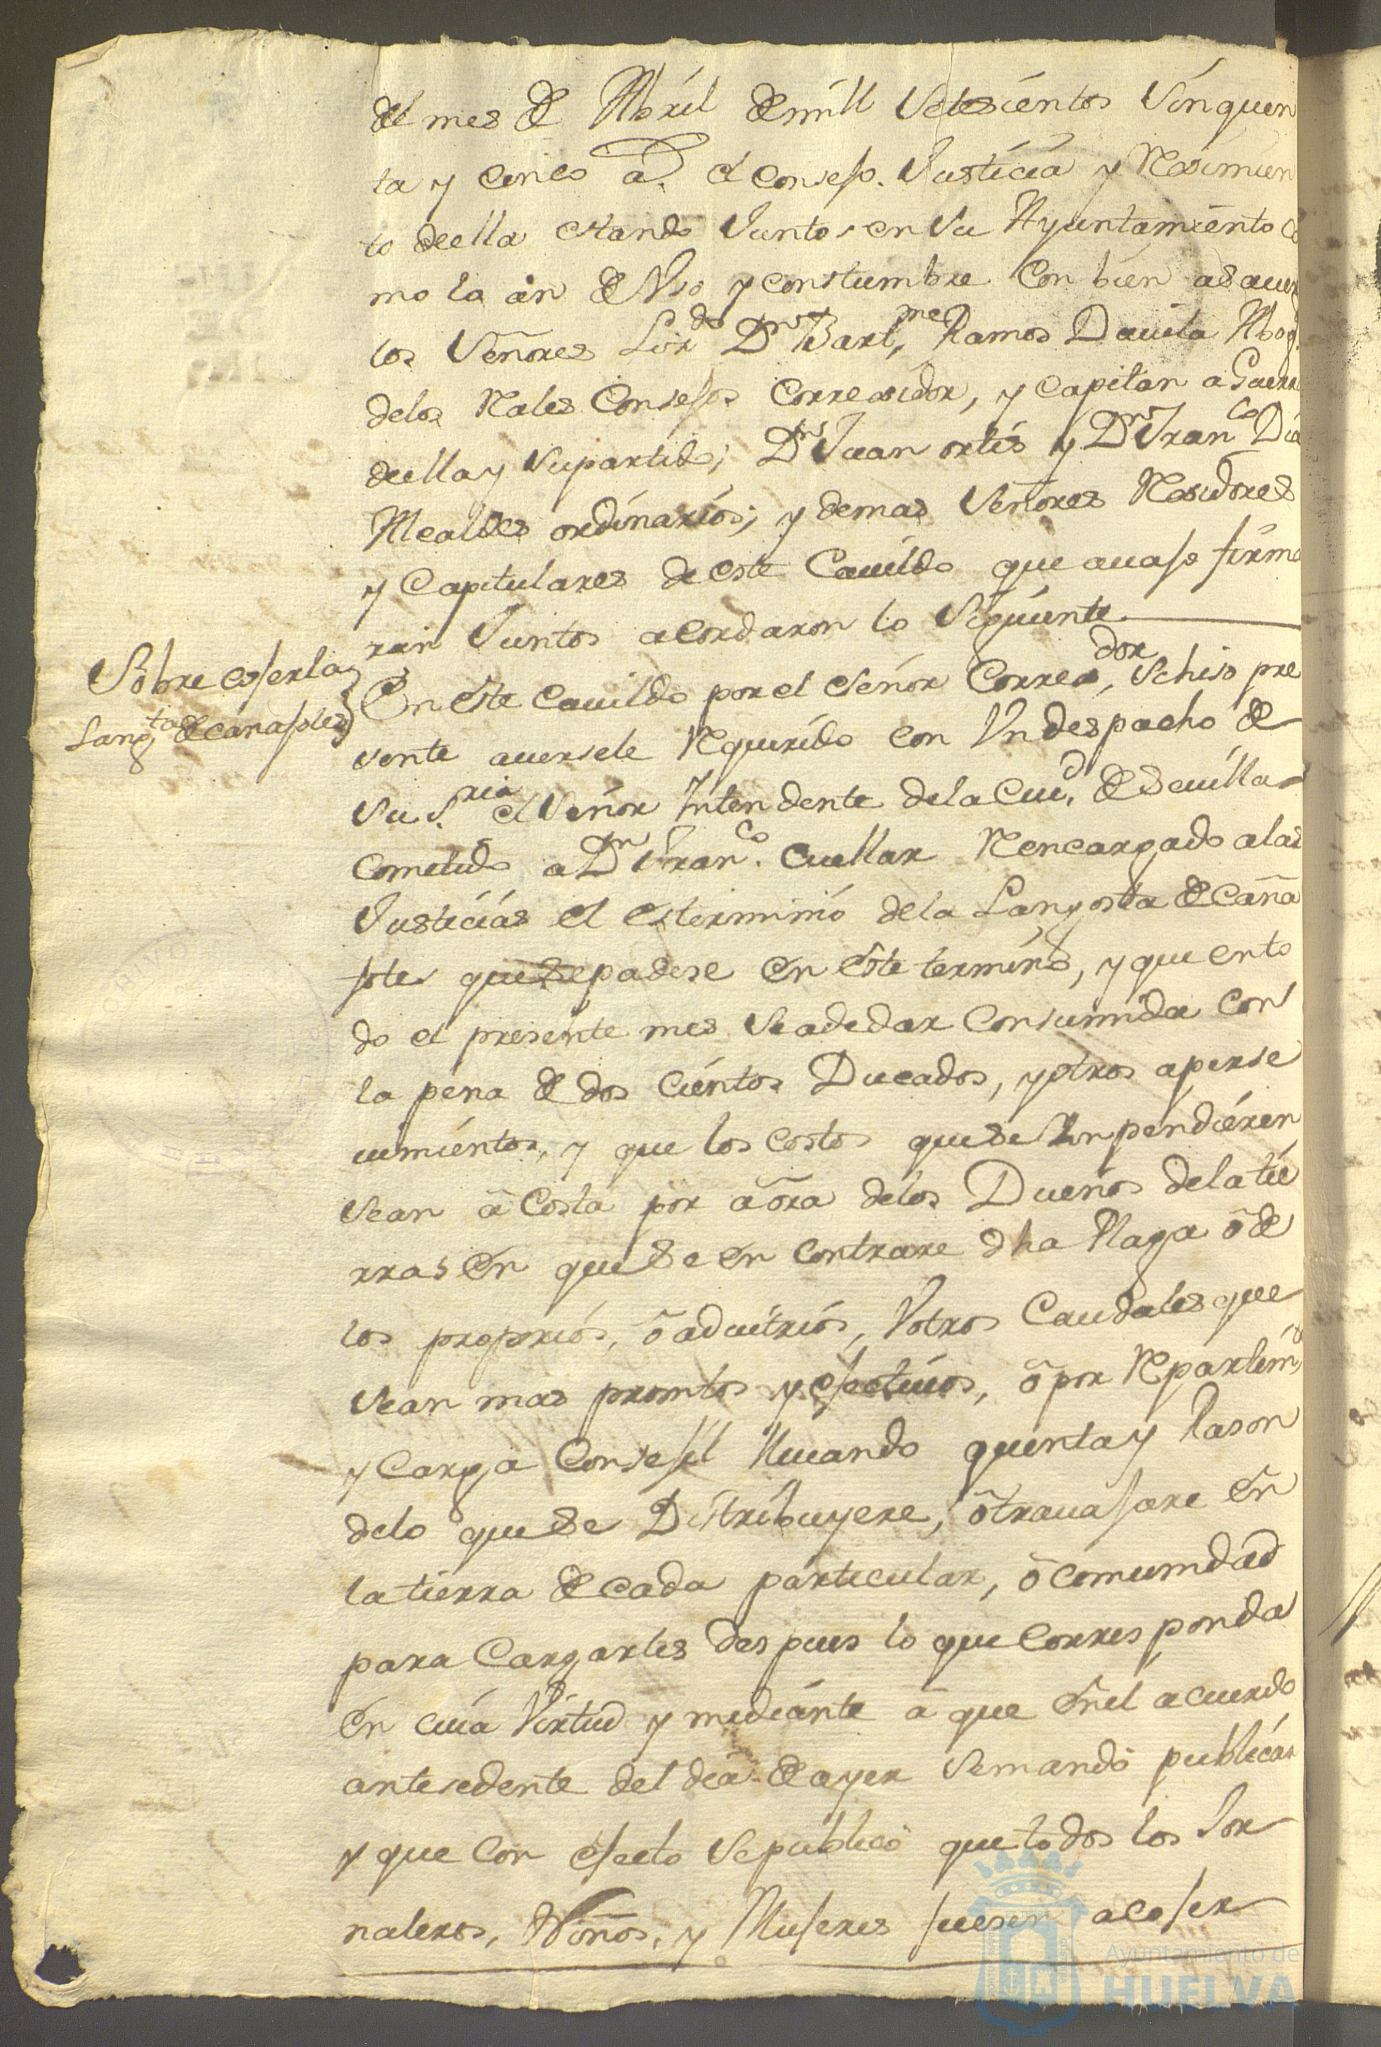 del mes de Abril de mill Setesientos Sinquen
ta y cinco a.s el Consejo. Justicia y Reximien
to de ella estando Juntos en Su Ayuntamiento Co
mo la an de Vso y constumbre Con bien a saver
los Señores Lizdo Dn Barlme, Ramos Davila Abog
delos Rales Consejos Correxidor, y Capitan a Guerra
de ella y Supartido; Dn Juan ortis y Dn Franco Dia
Alcaldes ordinarios; y demas Señores Rexidores
y Capitulares de este Cavildo que avajo firma
ran Juntos acordaron lo Siguiente
Sobre cojer la
Langta de canafotes
En este cavildo por el Señor Corredor, Sehiso pre
sente aversele Requerido con Vn despacho de
Su S.ria el Señor Intendente dela Ciud. de Sevilla
Cometido a Dn Franco. Cuellar Rencargado alas
Justicias el esterminio dela Langosta de Caña
fotes que se padese en este termino, y que en to
do el presente mes Seadedar Consumida Con
la pena de dos Cientos Ducados, y otros aperse
uimientos, y que los costos que se Inpendieren
Sean a Costa por aora delos Dueños dela tie
rras en que se en contrare dha Plaga o de
los proprios, o advitrios, V otros Caudales que
Sean mas promtos y efectivos, o por Repartimto
y Carga Consejil lluando quenta y Rason
delo que se Distribuyere, o travajare en
la tierra de cada particular, o comunidad
para Cargarles despues lo que Corresponda
en cuia Virtud y mediante a que en el acuerdo
antesedente del dia de ayer Semando publicar
y que Con efecto Sepublico que todos los Jor
naleros, Niños, y Mujeres fuesen a cojer
Ayuntamiento de
HUELVA